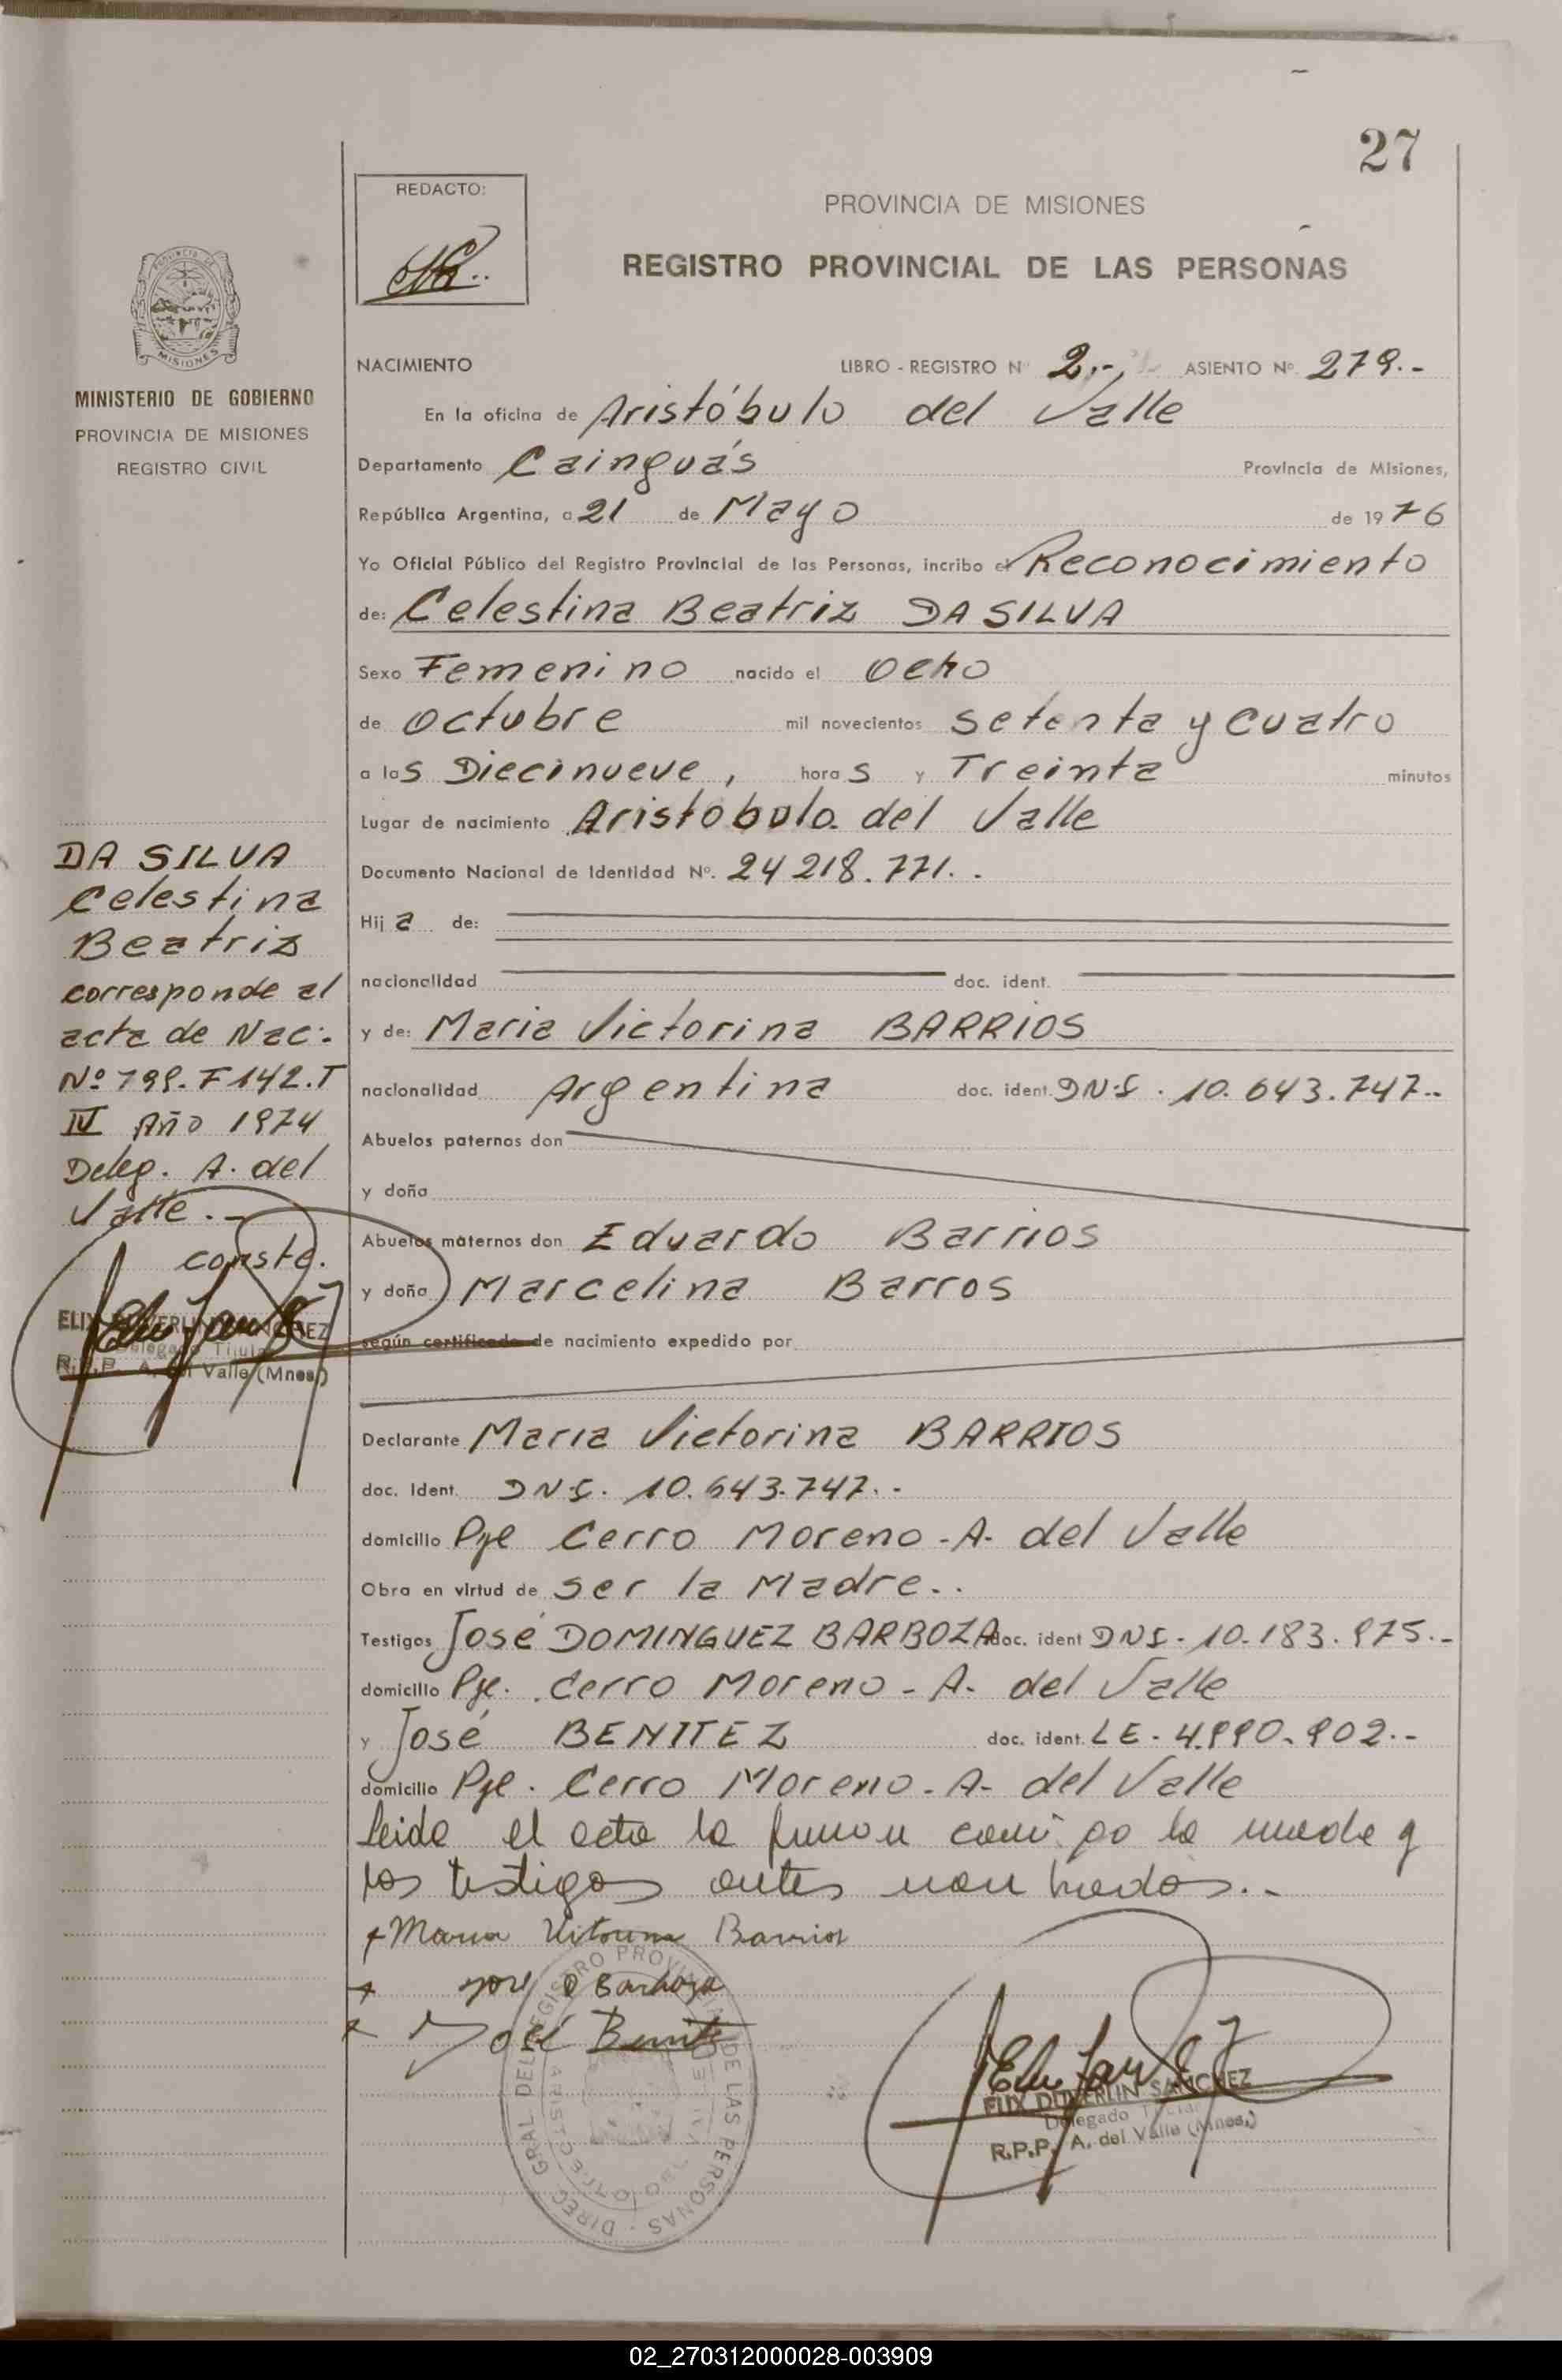 27
REDACTO:
PROVINCIA DE MISIONES
REGISTRO PROVINCIAL DE LAS PERSONAS
MISIONES
MINISTERIO DE GOBIERNO
PROVINCIA DE MISIONES
REGISTRO CIVIL
NACIMIENTO LIBRO - REGISTRO Nº 2.- ASIENTO Nº. 279.-
En la oficina de Aristóbulo del Valle
Departamento Cainguás Provincia de Misiones,
República Argentina, a 21 de Mayo de 1976
Yo Oficial Público del Registro Provincial de las Personas, incribo el Reconocimiento
de: Celestina Beatriz DA SILVA
Sexo Femenino nacido el ocho
de octubre mil novecientos setenta y cuatro
a las Diecinueve, horas y Treinta minutos
Lugar de nacimiento Aristóbulo del Valle
Documento Nacional de Identidad Nº. 24 218.771..
Hija de:
nacionalidad doc. ident.
y de: Maria Victorina BARRIOS
nacionalidad Argentina doc. ident. DNI. 10.643.747..
Abuelos paternos don
y doña
Abuelos maternos don Eduardo Barrios
y doña Marcelina Barros
según certificado de nacimiento expedido por
Declarante Maria Victorina BARRIOS
doc. Ident. DNI. 10.643.747..
domicilio Pje Cerro Moreno - A. del Valle
Obra en virtud de ser la Madre..
Testigos José DOMINGUEZ BARBOZA doc. ident DNI. 10.183.975.-
domicilio Pje. Cerro Moreno - A. del Valle
y José BENITEZ doc. ident. LE. 4.990.902.-
domicilio Pje. Cerro Moreno - A. del Valle
Leida el acta la firman conmigo la madre y
los testigos antes nombrados..
Maria Vitorina Barrios
José D Barboza
José Benite
DIREC. GRAL DEL REGISTRO PROVINCIAL DE LAS PERSONAS
ELIX DUVERLIN SANCHEZ
Delegado Titular
R.P.P. A. del Valle (Mnes.)
DA SILVA
Celestina
Beatriz
corresponde al
acta de Nac.
Nº 799. F 142. T
IV Año 1974
Deleg. A. del
Valle.-
conste.
ELIX DUVERLIN SANCHEZ
Delegado Titular
R.P.P. A. del Valle (Mnes.)
02_270312000028-003909